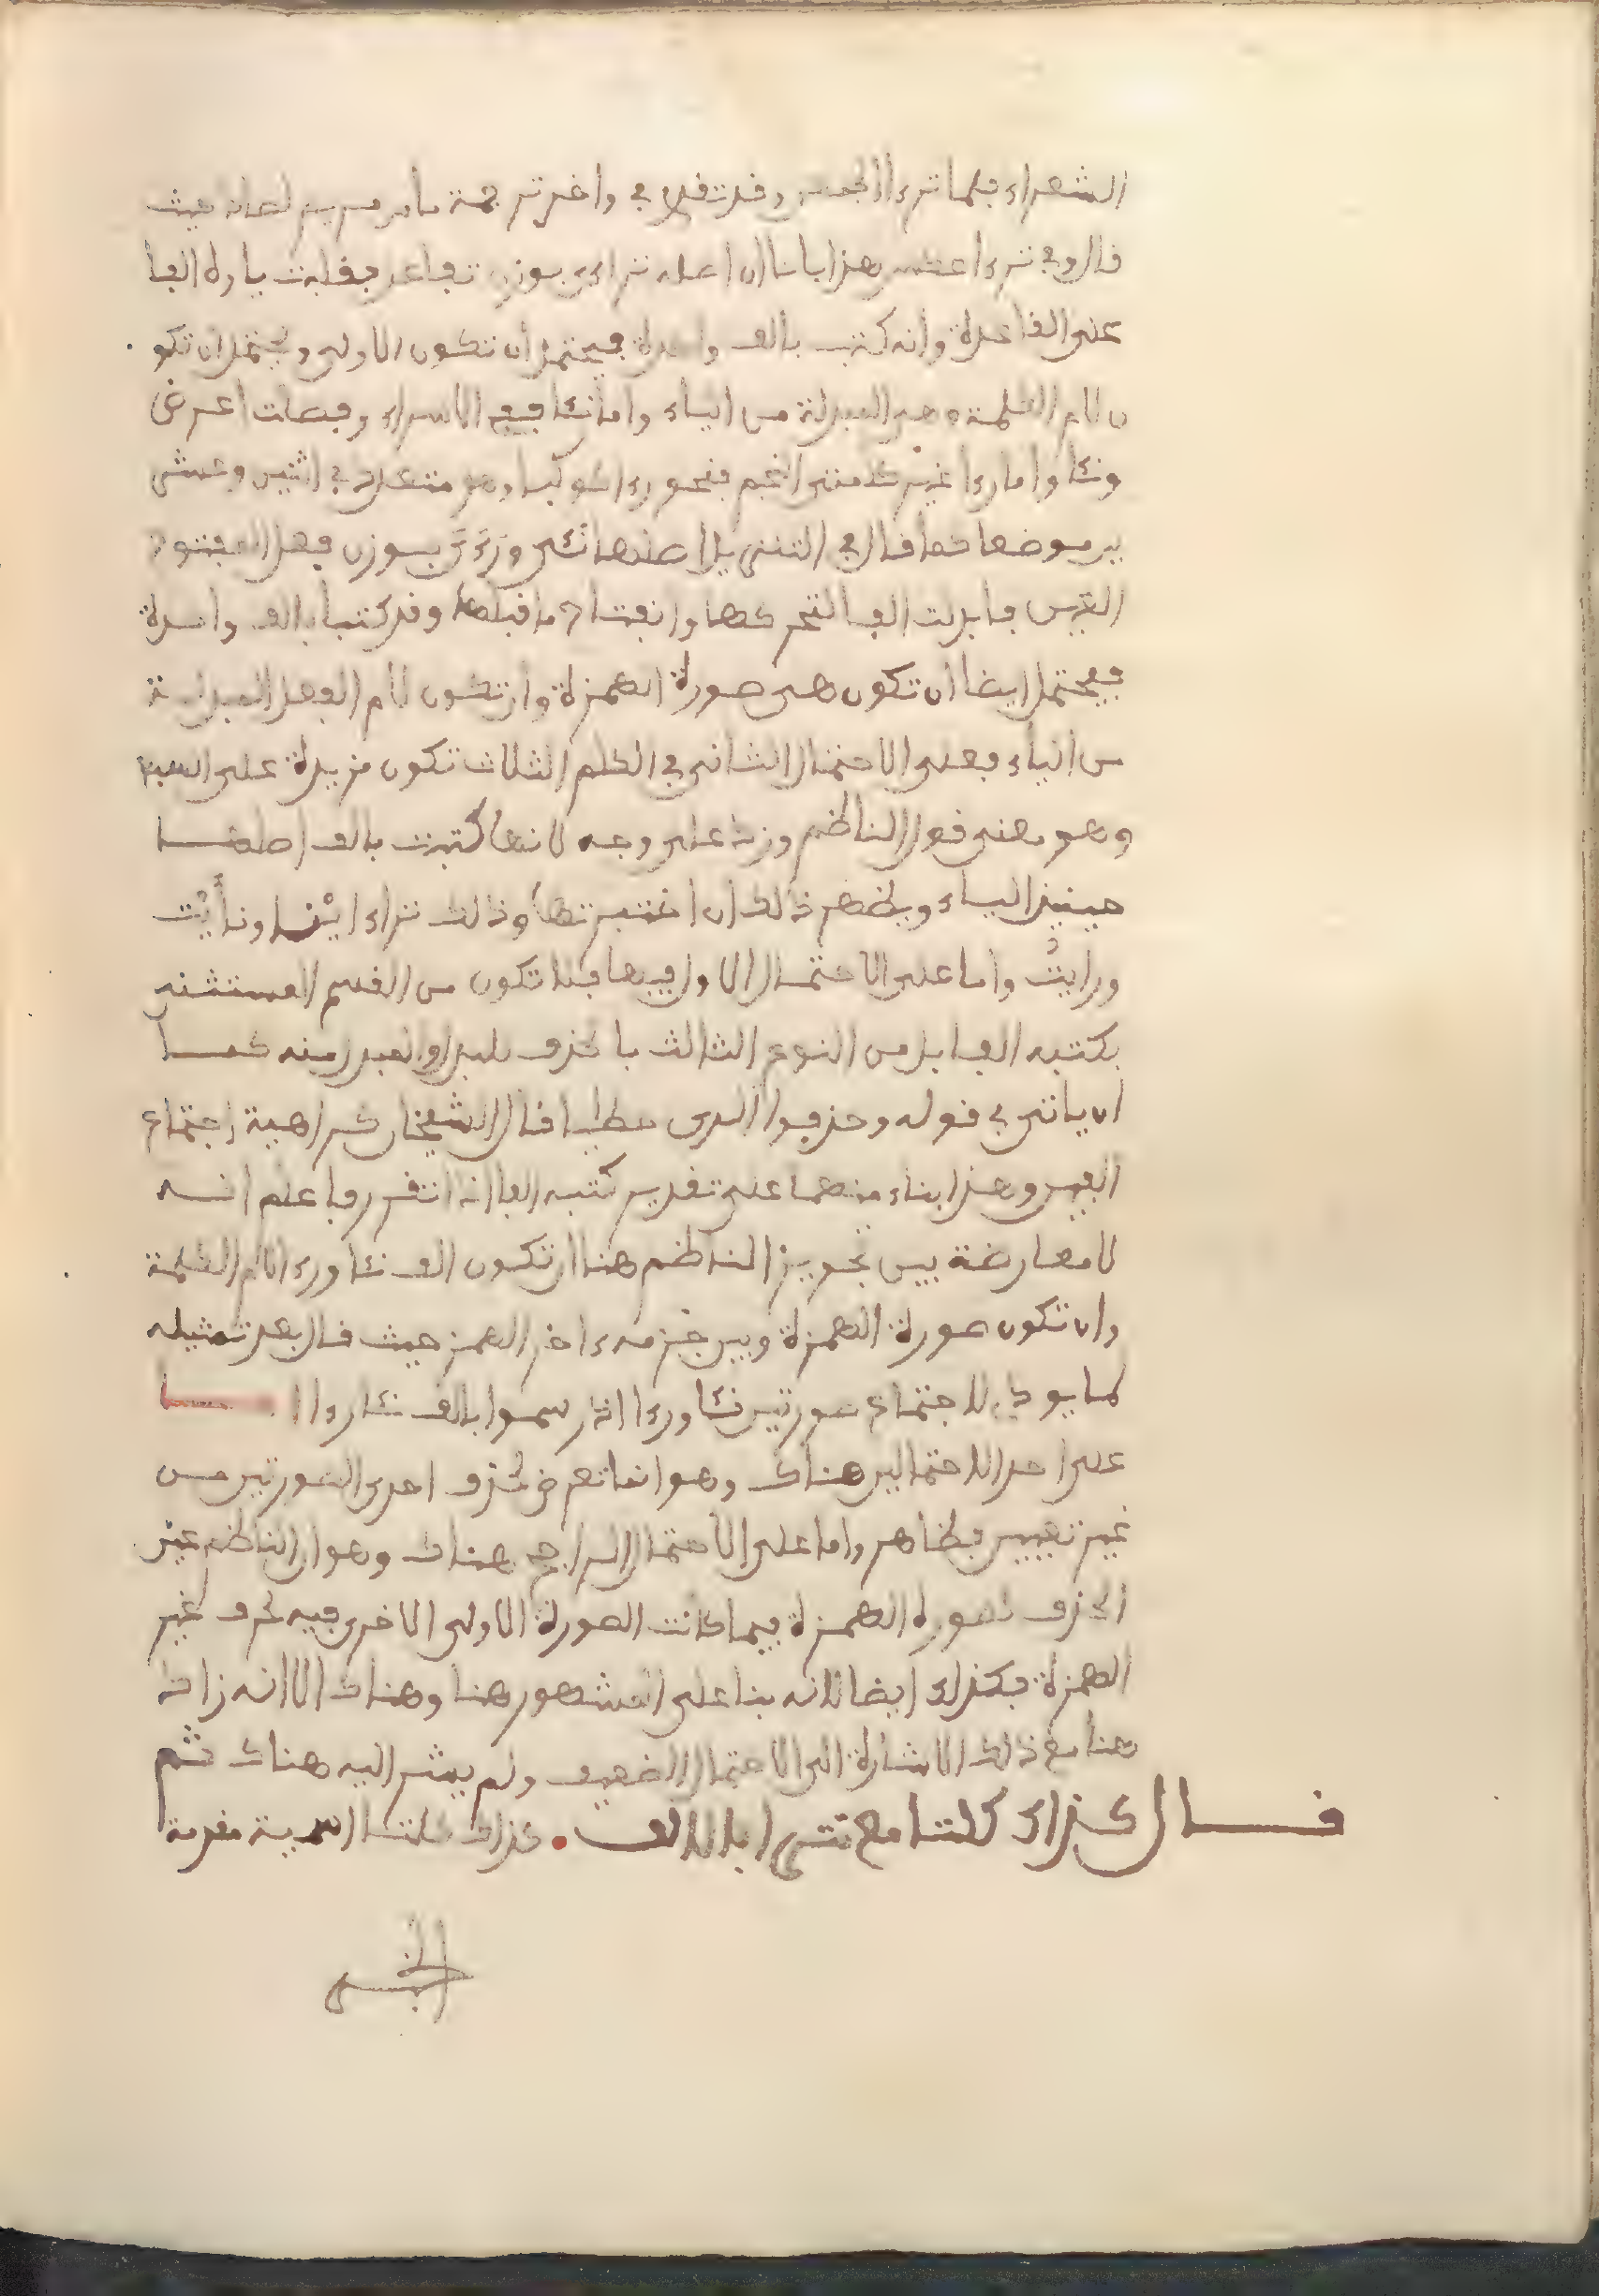 الشعراء فلما تراءا الجمعن وقد تقدم في واخر ترجمة ما من مريم لصاد حيث
قال وفي تراءا عكس هذا بانا ان اصله تراءى بوزن تفاعل فقلبت ياءه الفا
على القاعدة وانه كتب بالف واحدة فيحتمل أن تكون الاولى ويحتمل ان تكو
ن لام الكلمة وهي المبدلة من الياء واما نئا ففي الاسراء وفصلت اعرض
ونئا واما رءا غير كلمتي النجم فنحو رءا كوكبا وهو متعدد في اثنين وعشر
ين موضعا كما قال في التنزيل اصلهما نئى ورءى بوزن فعل المفتوح
العين فابدلت الفا لتحركها وانفتاح ما قبلها وقد كتبا بالف واحدة
فيحتمل ايضا ان تكون هي صورة الهمزة وان تكون لام الفعل المبدلة
من الياء فعلى الاحتمال الثاني في الكلم الثلاث تكون مزيدة على السبع
وهو معنى قول الناظم وزد على وجه لانها كتبت بالف اصلها
حينيذ الياء ويظهر ذالك ان اختبرتها وذالك تراءاينا ونأيت
ورايت واما على الاحتمال الاول فيها فلا تكون من القسم المستثنى
بكتبه الفا بل من النوع الثالث با لحذف للبدل والمبدل منه كما
ان ياتي في قوله وحذفوا الذى خطايا قال الشيخان كراهية اجتماع
الفين وهذا بناء منهما على تقدير كتبه الفا اذا تقرر فاعلم انه
لا معارضة بين تجويز الناظم هنا ان تكون الف نئا ورءا لام الكلمة
وان تكون صورة الهمزة وبين جزمه ءاخر الهمز حيث قال بعد تمثيله
لما يود لاجتماع صورتين نئا ورءا اذ رسموا بالف نئا رءا اما
على احد الاحتمالين هناك وهو انما تعرض لحذف احدى الصورتين من
غير تعيين فظاهر واما على الاحتمال الراجح هناك وهو ان الناظم عين
الحذف لصورة الهمزة فيما كانت الصورة الاولى الاخرى فيه لحرف غير
الهمزة فكذلك ايضا لانه بنا على المشهور هنا وهناك الا انه زاد
هنا مع ذالك الاشارة الى الاحتمال الضعيف ولم يشر اليه هناك ثم
قال كذاك كلتا مع تترى بالالف • كذاك كلتا